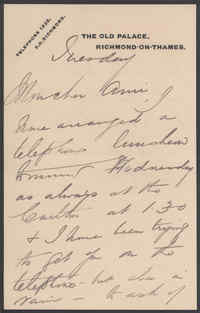 TELEPHONE 1325,
P.O. RICHMOND.
THE OLD PALACE,
RICHMOND-ON-THAMES.
Tuesday
Mon cher Ami,
I
have arranged a
telephone luncheon
Wednesday
as always at the
Carlton at 1.30
& I have been trying
to get you on the
telephone - but also in
vain - to ask if